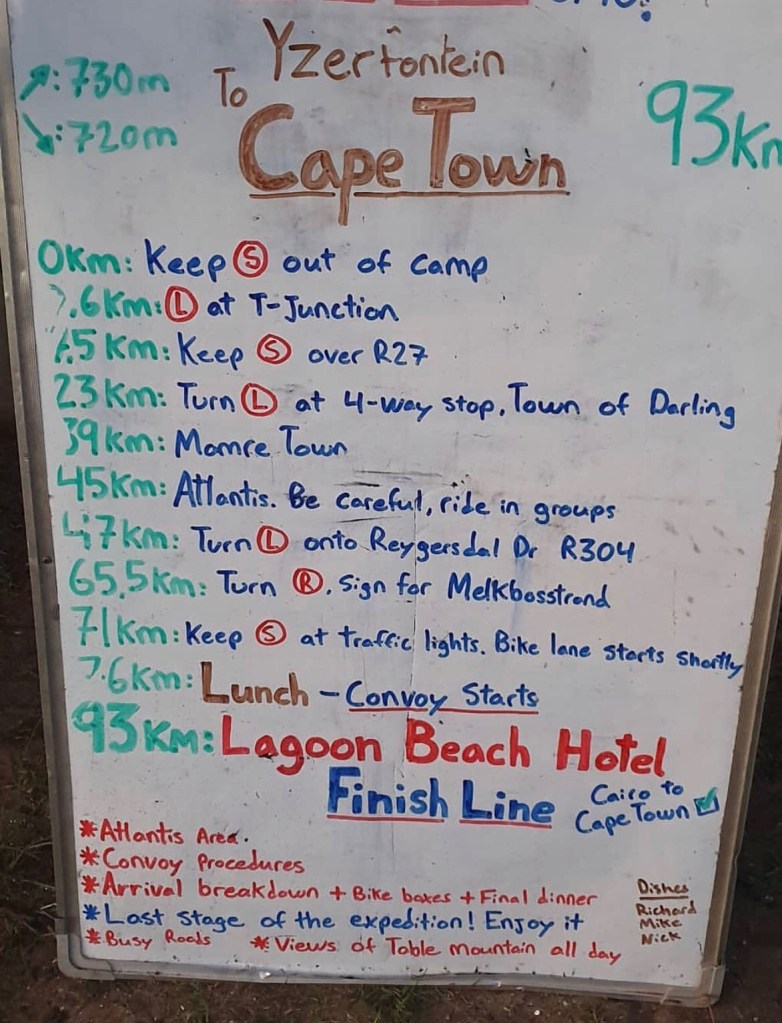 Yzerfontein
↗:730m
To
↘:720m
Cape Town
93Km
0Km: Keep Ⓢ out of camp
.6Km: Ⓛ at T-Junction
.5 Km: Keep Ⓢ over R27
23Km: Turn Ⓛ at 4-way stop. Town of Darling
39km: Mamre Town
45Km: Atlantis. Be careful, ride in groups
47km: Turn Ⓛ onto Reygersdal Dr R304
65,5Km: Turn Ⓡ. Sign for Melkbosstrand
71Km: Keep Ⓢ at traffic lights. Bike lane starts shortly
76km: Lunch - Convoy Starts
93Km: Lagoon Beach Hotel
Finish Line
Cairo to
Cape Town ☑
*Atlantis Area.
*Convoy Procedures
*Arrival breakdown + Bike boxes + Final dinner
*Last stage of the expedition! Enjoy it
*Busy Roads *Views of Table mountain all day
Dishes
Richard
Mike
Nick